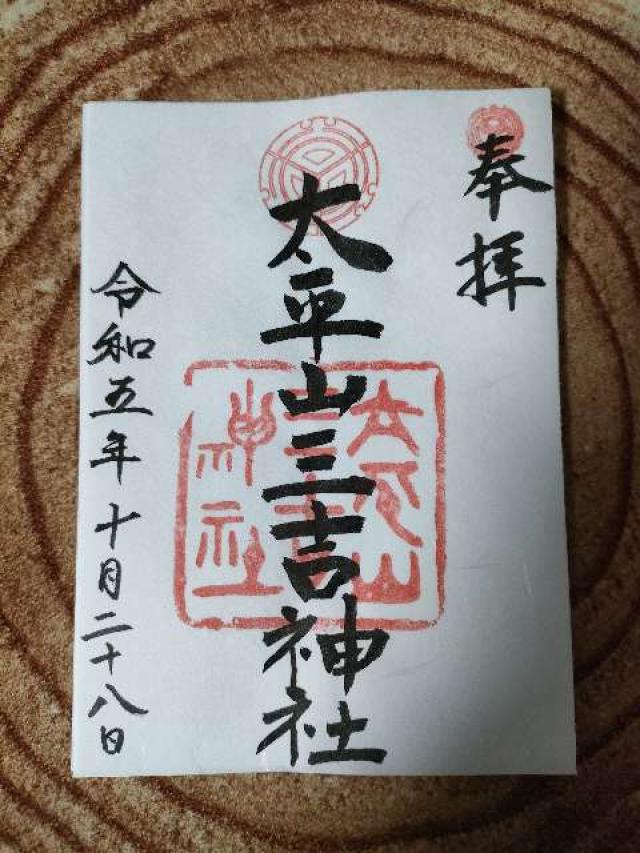 奉拝
太平山三吉神社
令和五年十月二十八日
太平山
三吉
神社